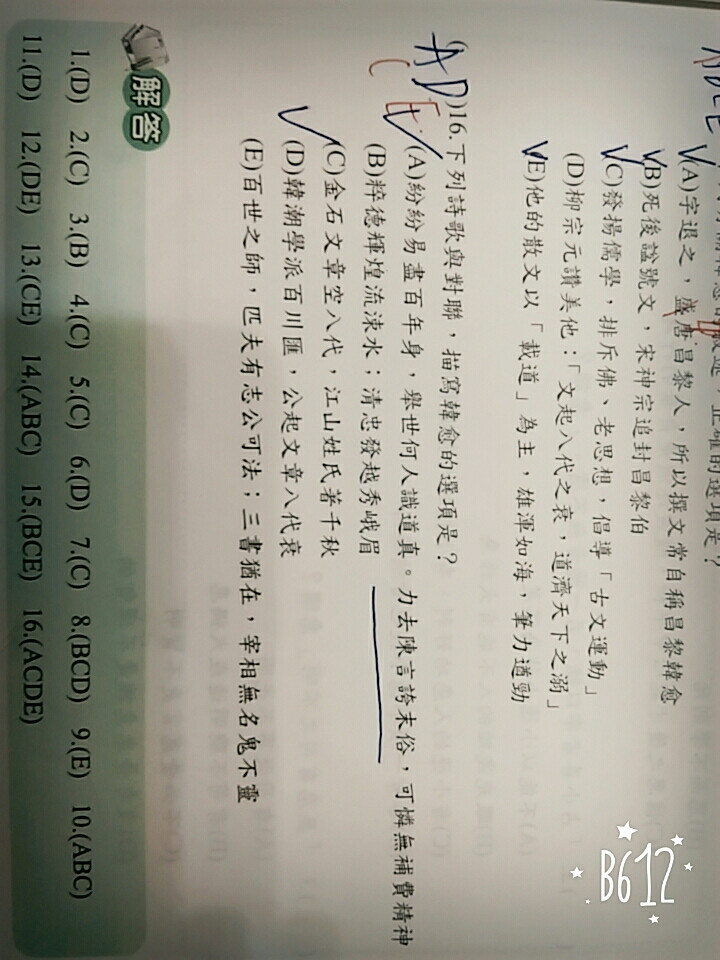 (A)字退之，盛唐昌黎人，所以撰文常自稱昌黎韓愈
(B)死後謚號文，宋神宗追封昌黎伯
(C)發揚儒學，排斥佛、老思想，倡導「古文運動」
(D)柳宗元讚美他：「文起八代之衰，道濟天下之溺」
(E)他的散文以「載道」為主，雄渾如海，筆力遒勁
AD
CE
)16.下列詩歌與對聯，描寫韓愈的選項是？
(A)紛紛易盡百年身，舉世何人識道真。力去陳言誇末俗，可憐無補費精神
(B)粹德輝煌流涑水；清忠發越秀峨眉
(C)金石文章空八代，江山姓氏著千秋
(D)韓潮學派百川匯，公起文章八代衰
(E)百世之師，匹夫有志公可法；三書猶在，宰相無名鬼不靈
解答
1.(D) 2.(C) 3.(B) 4.(C) 5.(C) 6.(D) 7.(C) 8.(BCD) 9.(E) 10.(ABC)
11.(D) 12.(DE) 13.(CE) 14.(ABC) 15.(BCE) 16.(ACDE)
B612